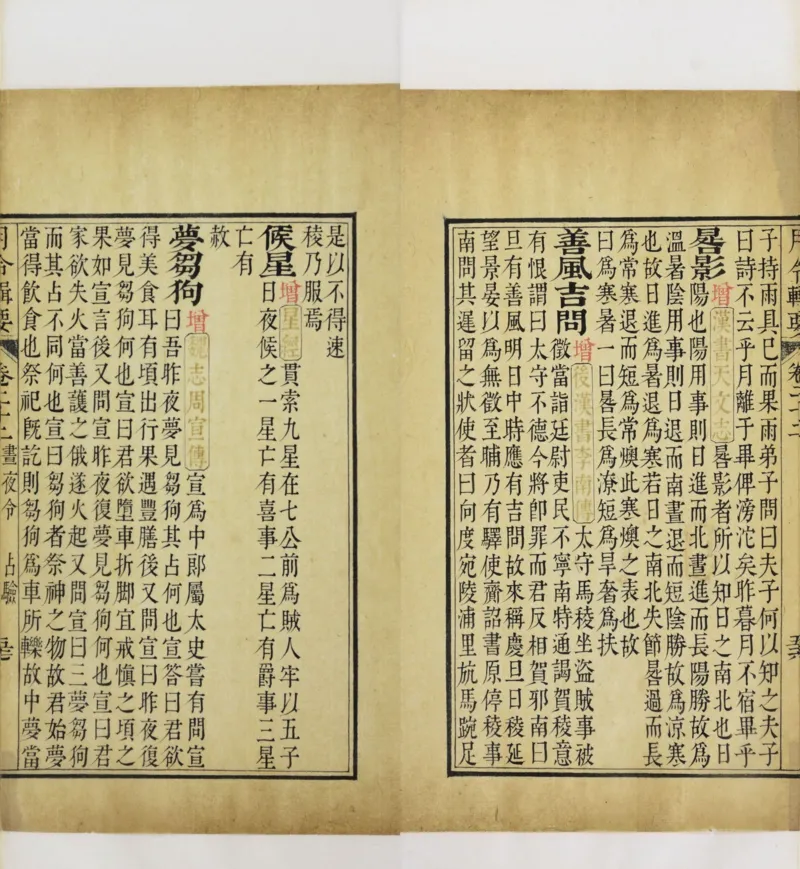 月令輯要 卷二十二
子持雨具已而果雨弟子問曰夫子何以知之夫子
曰詩不云乎月離于畢俾滂沱矣昨暮月不宿畢乎
晷影 增 漢書天文志 晷影者所以知日之南北也日
陽也陽用事則日進而北晝進而長陽勝故爲
溫暑陰用事則日退而南晝退而短陰勝故爲凉寒
也故日進爲暑退爲寒若日之南北失節晷過而長
爲常寒退而短爲常燠此寒燠之表也故
曰爲寒暑一曰晷長爲潦短爲旱奢爲扶
善風吉問 增 後漢書李南傳 太守馬稜坐盜賊事被
徵當詣廷尉吏民不寧南特通謁賀稜意
有恨謂曰太守不德今將即罪而君反相賀邪南曰
旦有善風明日中時應有吉問故來稱慶旦日稜延
望景晏以爲無徵至晡乃有驛使齎詔書原停稜事
南問其遲留之狀使者曰向度宛陵浦里㡃馬踠足
是以不得速
稜乃服焉
候星 增 星經 貫索九星在七公前爲賊人牢以五子
日夜候之一星亡有喜事二星亡有爵事三星
亡有
赦
夢芻狗 增 魏志周宣傳 宣爲中郎屬太史嘗有問宣
曰吾昨夜夢見芻狗其占何也宣答曰君欲
得美食耳有頃出行果遇豐膳後又問宣曰昨夜復
夢見芻狗何也宣曰君欲墮車折脚宜戒愼之頃之
果如宣言後又問宣昨夜復夢見芻狗何也宣曰君
家欲失火當善護之俄遂火起又問宣曰三夢芻狗
而其占不同何也宣曰芻狗者祭神之物故君始夢
當得飲食也祭祀旣訖則芻狗爲車所轢故中夢當
月令輯要 卷二十二 晝夜令 占驗